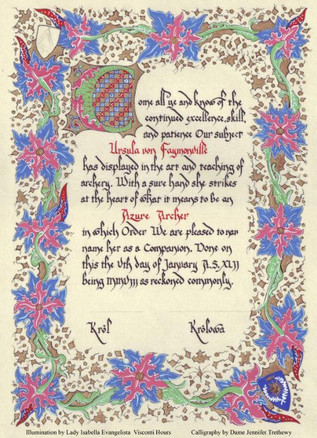 Come all ye and know of the
continued excellence, skill,
and patience Our subject
Ursula von Faynonville
has displayed in the art and teaching of
archery. With a sure hand she strikes
at the heart of what it means to be an
Azure Archer
in which Order We are pleased to now
name her as a Companion. Done on
this the Vth day of January A.S. XLII
being MMVIII as reckoned commonly.
Król Królowa
Illumination by Lady Isabella Evangelista Visconti Hours Calligraphy by Daine Jennifer Trethewy